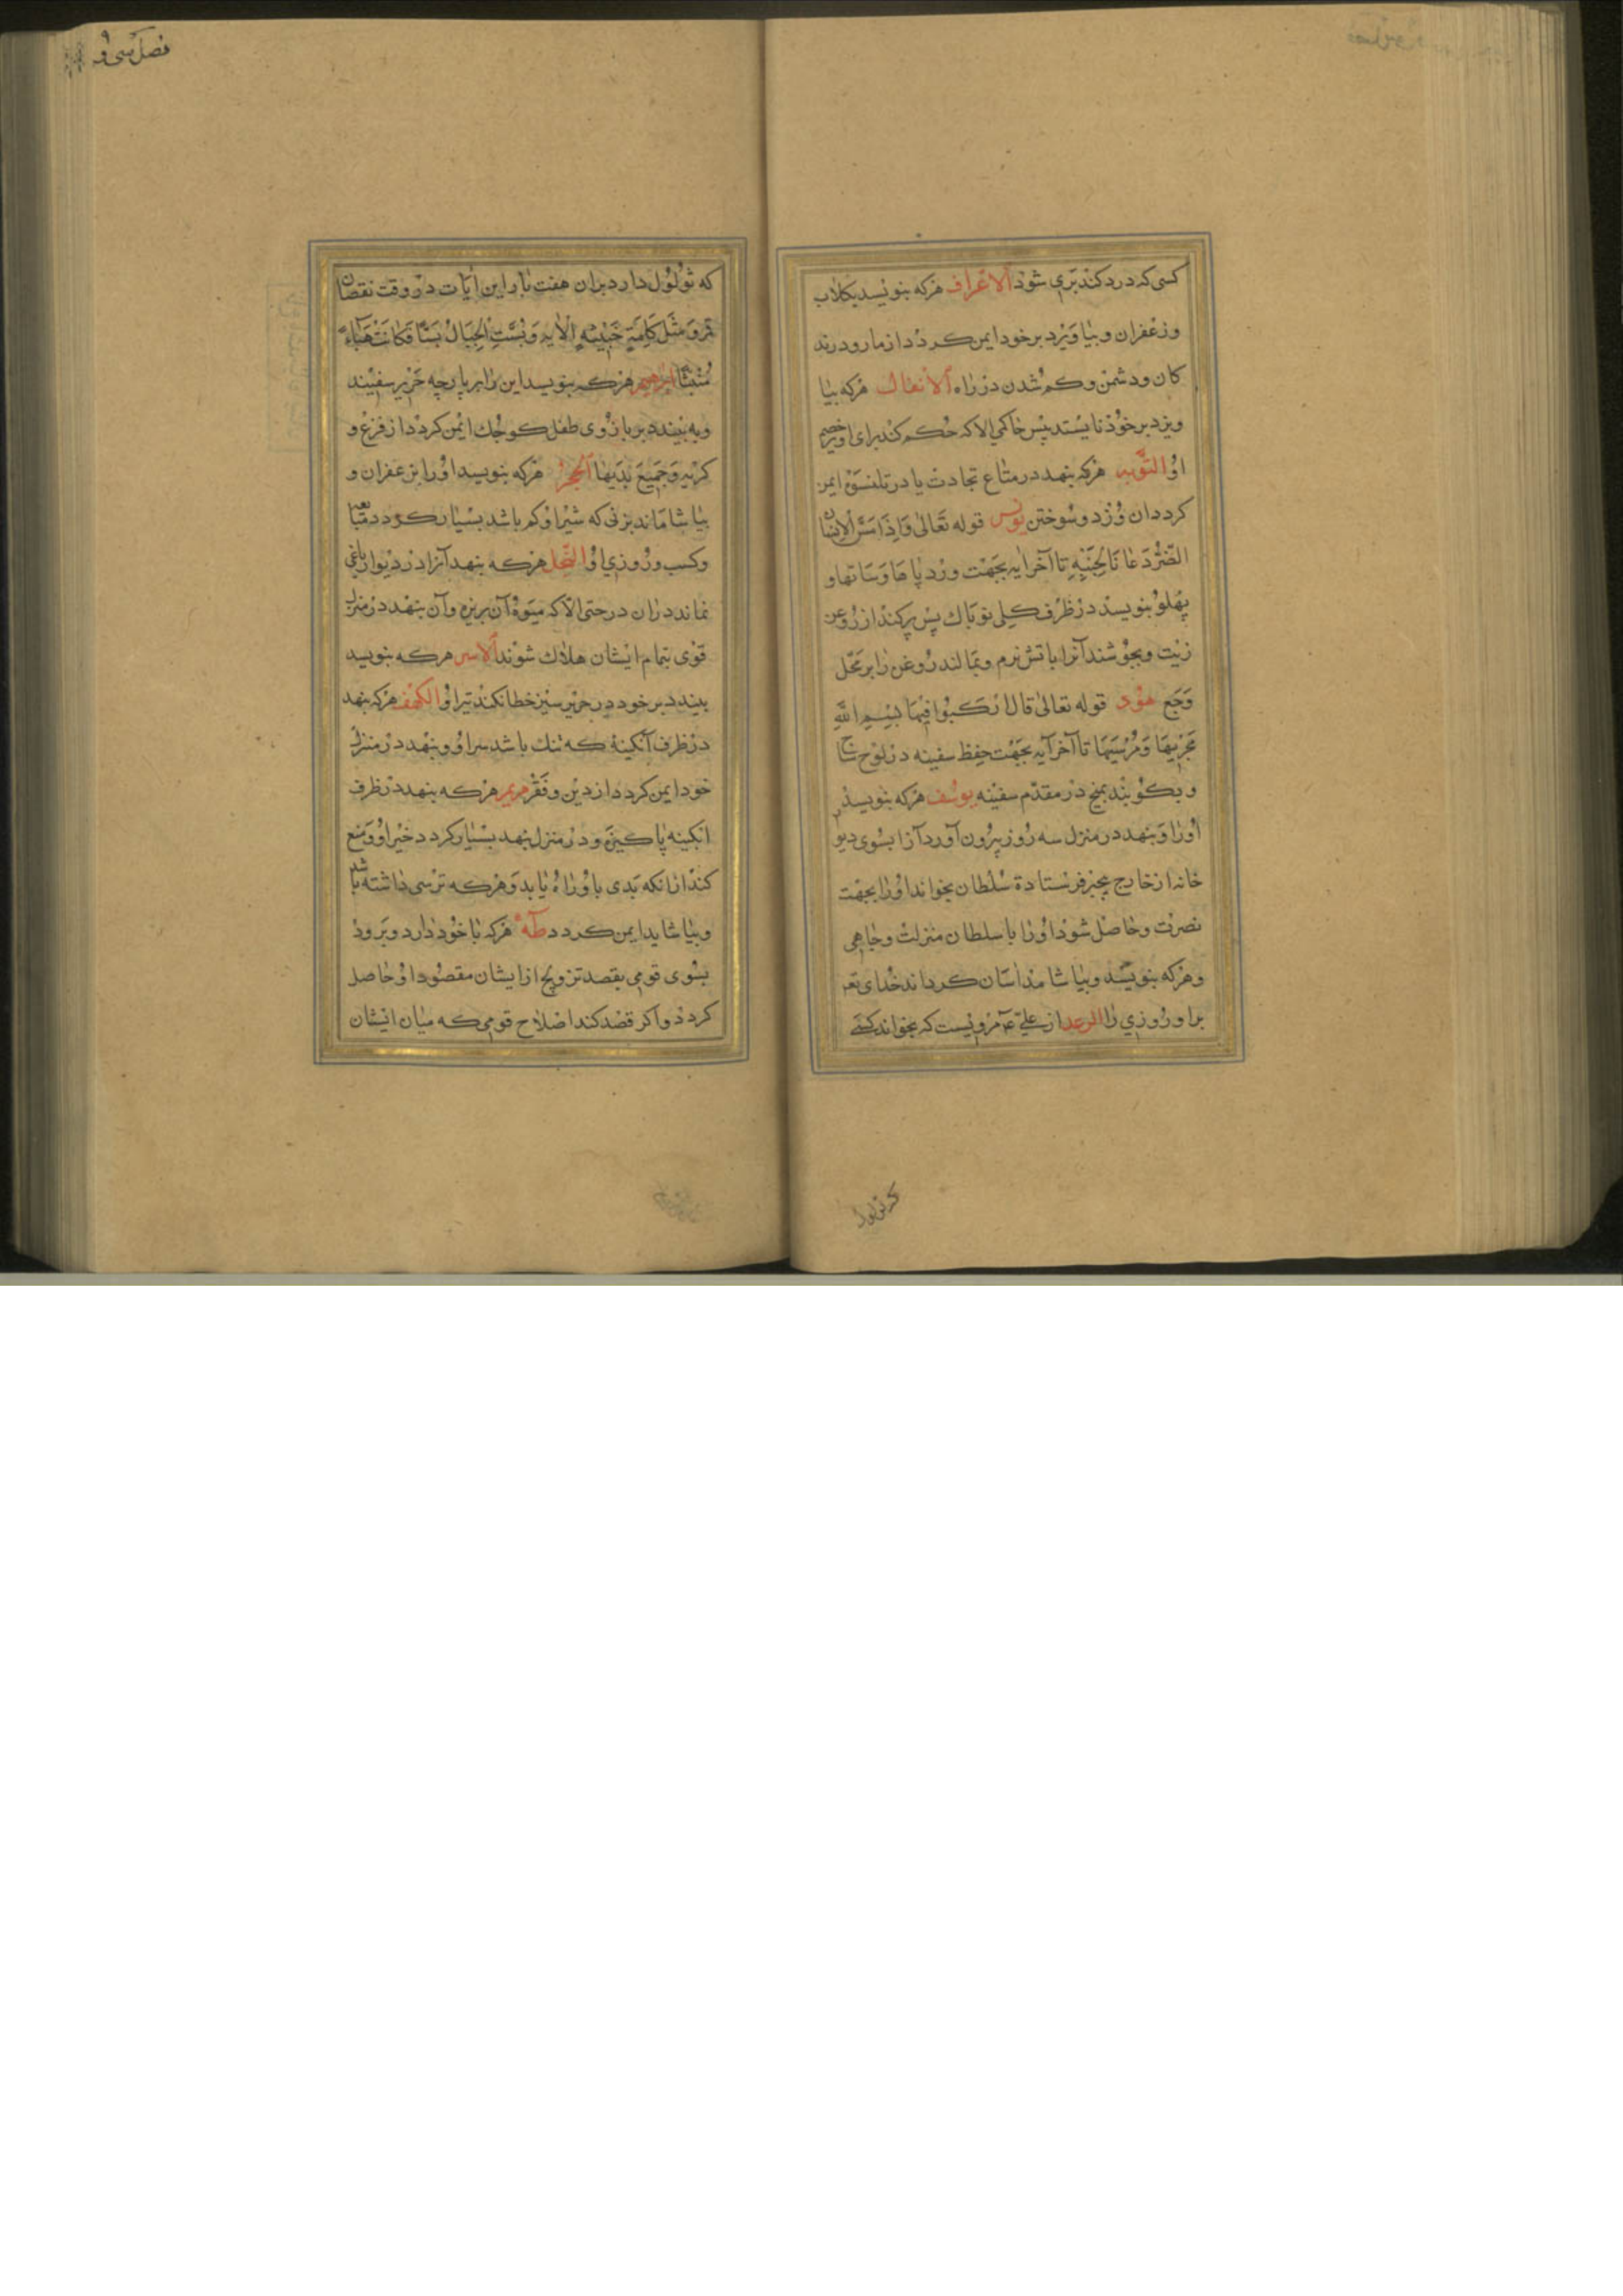 کسی که درد کند بری شود الاعراف هرکه بنویسد بکلاب
وزعفران وبیاویزد برخود ایمن کردد از مار ودرند
کان ودشمن وکم شدن در راه الانفال هرکه بیا
ویزد برخود نایستد پیش حاکمی الا که حکم کند برای او برخصم
او التوبه هرکه بنهد در متاع تجارت یا در قلنسوة ایمن
کردد ان دزد وسوختن یونس قوله تعالی واذا مس الانسان
الضر دعانا لجنبه تا آخر ایه بجهت ورد پاها وساقها و
پهلو بنویسد در ظرف کلی نو پاك پس پر کند از روغن
زیت وبجوشند آنرا باتش نرم وبمالند روغن را بر محل
وجع هود قوله تعالی قال ارکبوا فیها بسم الله
مجریها ومرسیها تا آخر آیه بجهت حفظ سفینه در لوح ساج
وبکوبند بمیخ در مقدم سفینه یوسف هرکه بنویسد
اورا وبنهد در منزل سه روز بیرون آورد آنرا بسوی دیو
خانه از خارج بجز فرستادة سلطان بخواند اورا بجهت
نصرت وحاصل شود اورا با سلطان منزلت وجاهی
وهرکه بنویسد وبیاشامد آسان کرداند خدای تعه
براو روزی را الرعد از علی ع مرویست که بخواند کسی
که ثولول
فصل سی و
که ثولول دارد بران هفت بار این ایات در وقت نقصان
قمر ومثل کلمة خبیثة الایه وبست الجبال بسا فکانت هباء
منبثا ابراهیم هرکه بنویسد این را بر پارچه حریر سفیند
وبه بندد بر بازوی طفل کوچك ایمن کردد از فزع و
کریه وجمیع بدیها الحجر هرکه بنویسد اورا بزعفران و
بیاشاماند بزنی که شیر او کم باشد بسیار کردد
وکسب وروزی او النحل هرکه بنهد آنرا در دیوار باغی
نماند دران درختی الا که میوۀ آن بریزد وآن بنهد در منزل
قومی بتمام ایشان هلاك شوند الاسر هرکه بنویسد
ببندد بر خود در حریر سبز خطا نکند تیر او الکهف هرکه بنهد
در ظرف آبکینۀ که تنك باشد سر او وبنهد در منزل
خود ایمن کردد از دین وفقر مریم هرکه بنهد در ظرف
ابکینه پاکیزه ودر منزل بنهد بسیار کردد خیر او ومنع
کند ازانکه بدی باو راه یابد وهرکه ترسی داشته باشد
وبیاشاید ایمن کردد طه هرکه با خود دارد وبرود
بسوی قومی بقصد تزویج از ایشان مقصود او حاصل
کردد واکر قصد کند اصلاح قومی که میان ایشان